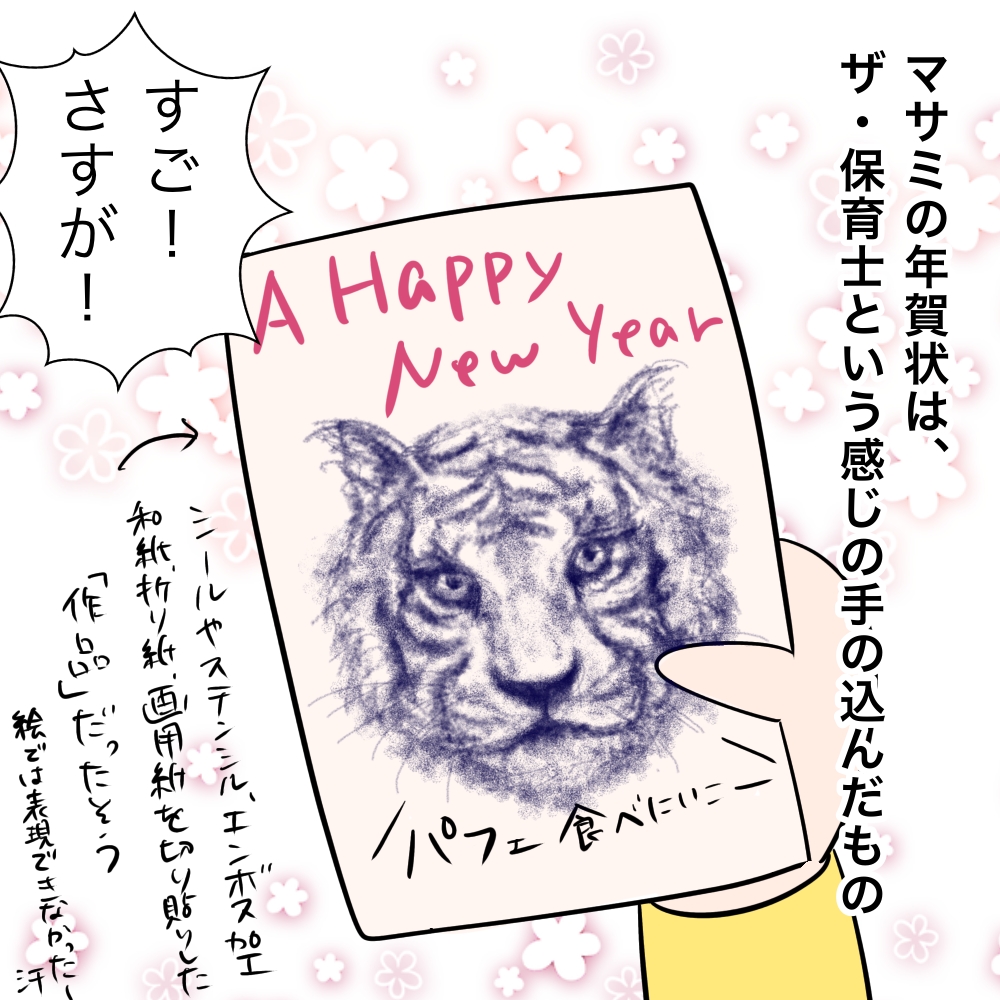 マサミの年賀状は、
ザ・保育士という感じの手の込んだもの
すご！
さすが！
A Happy
New Year
パフェ食べにいこー
シールやステンシル、エンボス加工
和紙、折り紙、画用紙を切り貼りした
「作品」だったそう
絵では表現できなかったー
汗